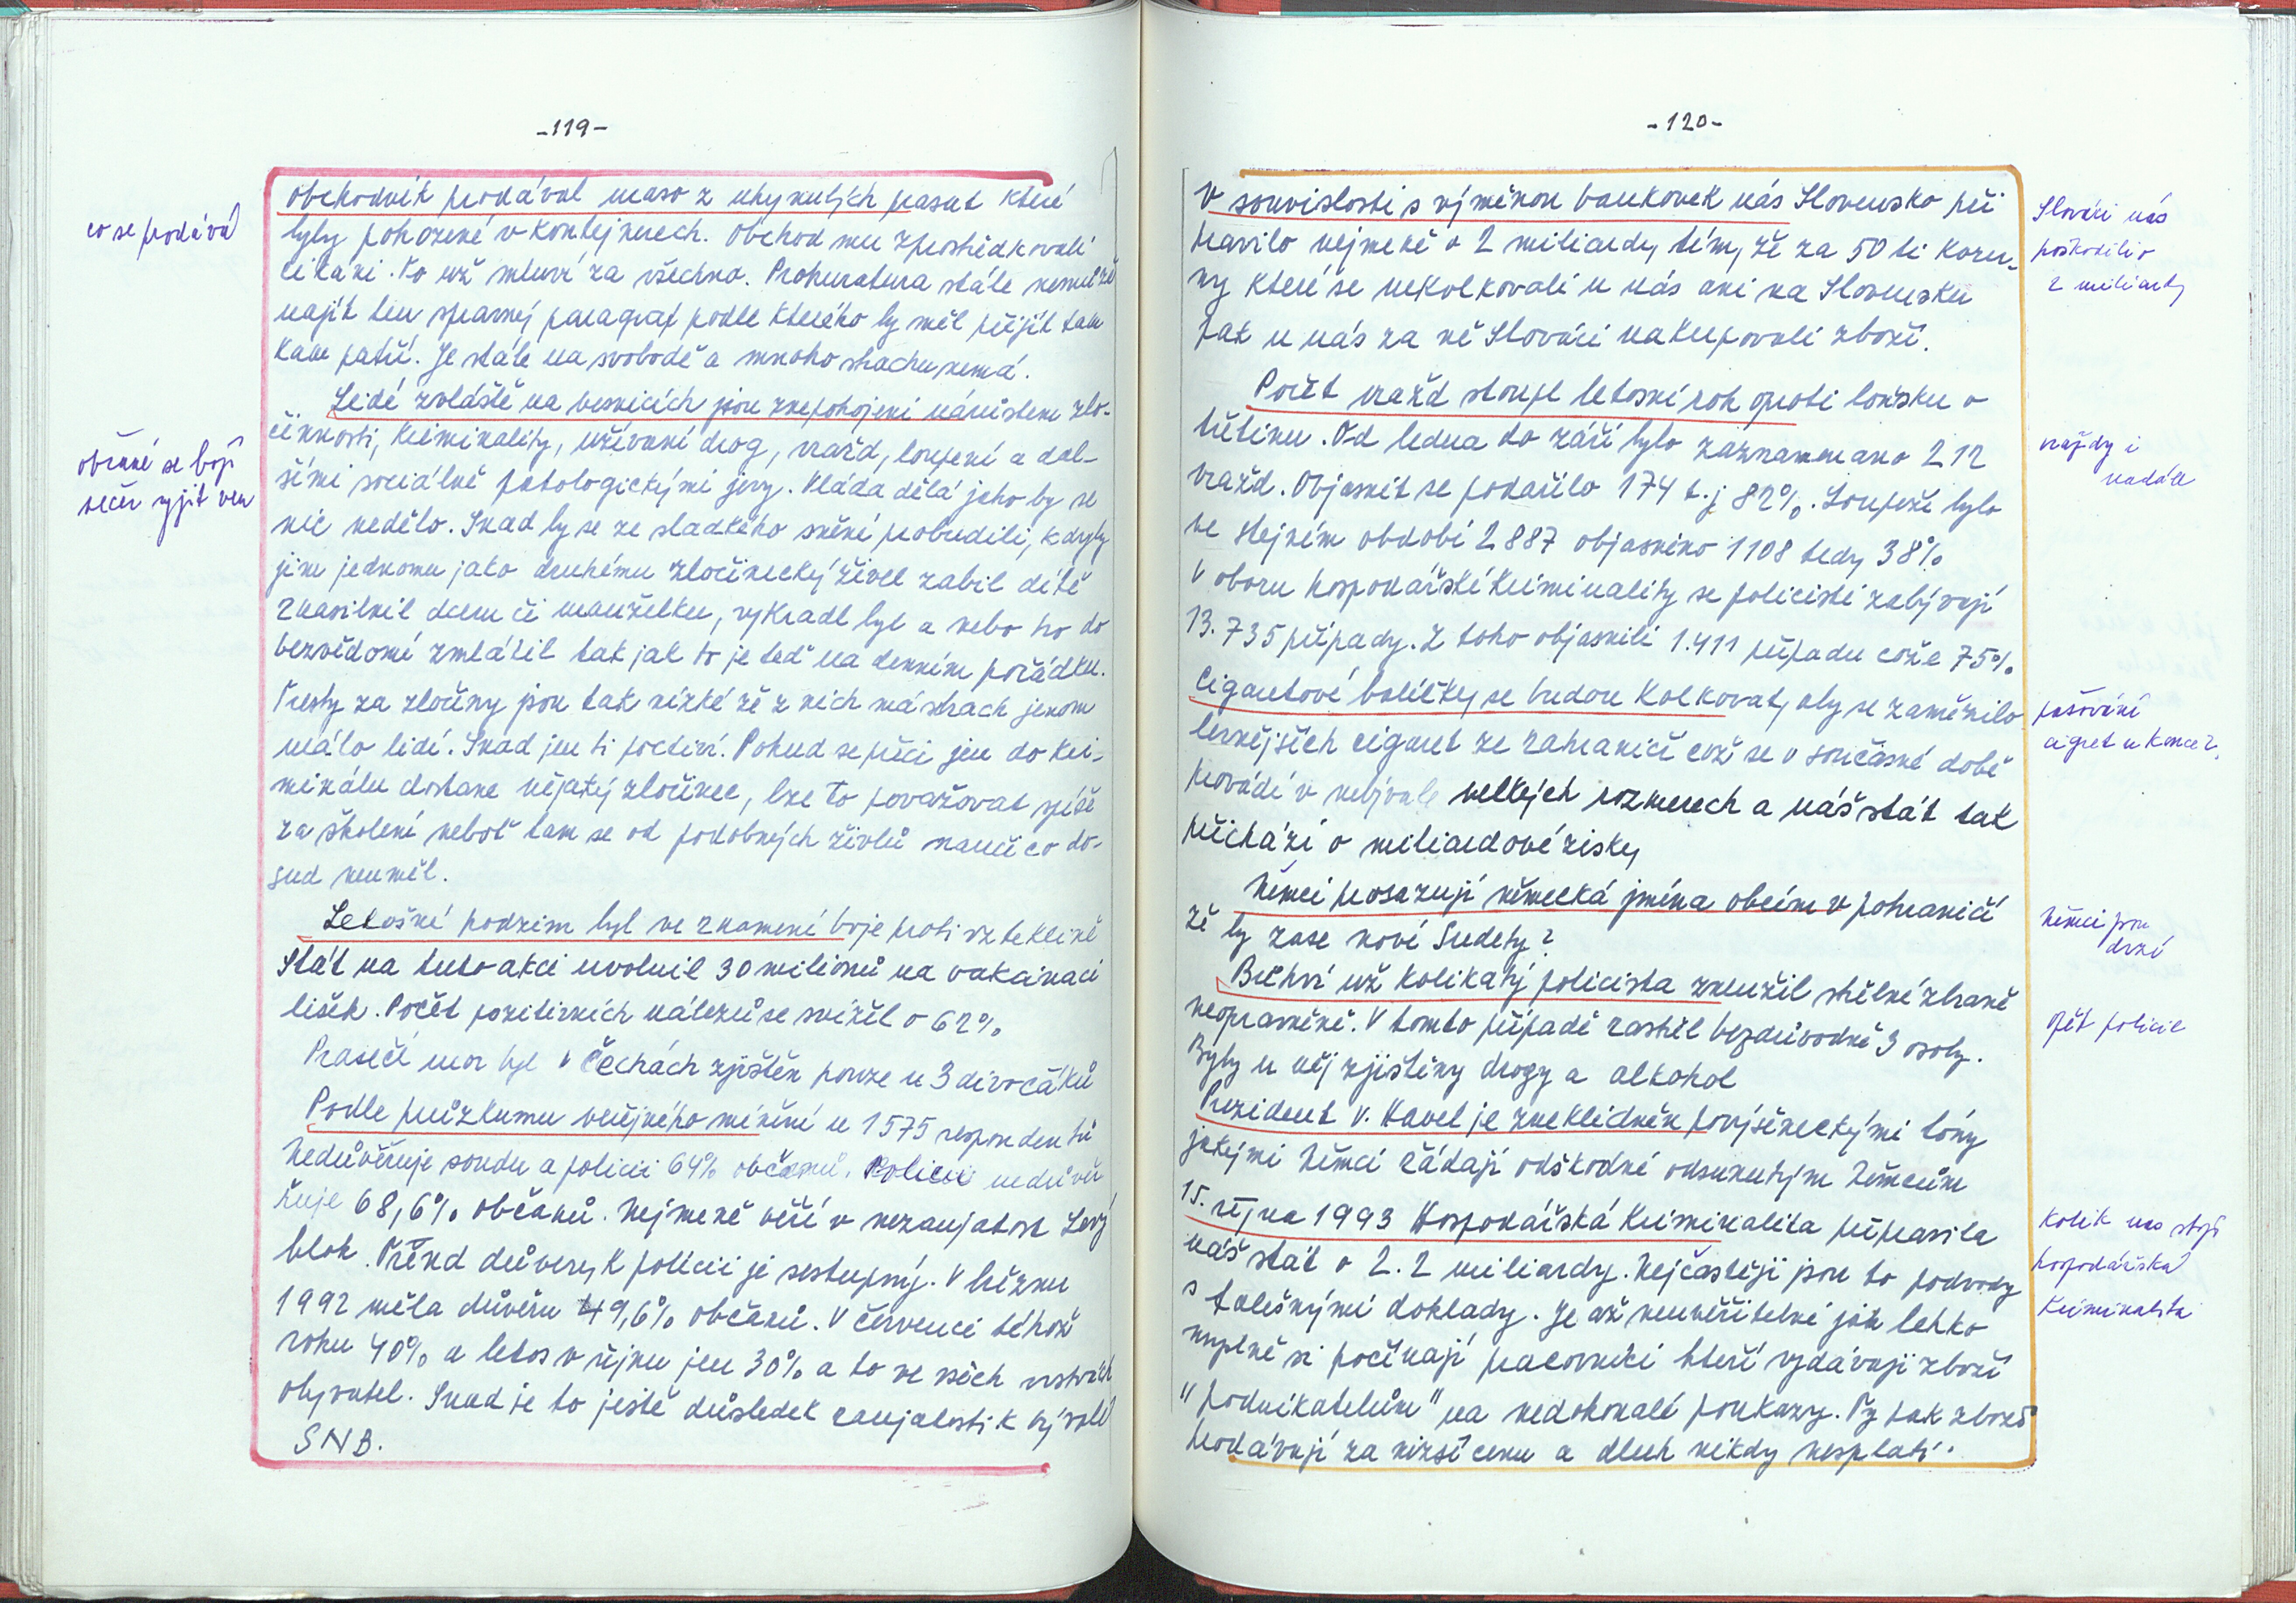 -119-
co se prodává
obchodník prodával maso z uhynulých prasat které
byly pohozené v kontejnerech. Obchod mu zprostředkovali
cikáni. To už mluví za všechno. Prokuratura stále nemůže
najít ten správný paragraf podle kterého by měl přijít tam
kam patří. Je stále na svobodě a mnoho strachu nemá.
Lidé zvláště na vesnicích jsou znepokojeni nárůstem zlo-
činnosti, kriminality, užívání drog, vražd, loupení a dal-
občané se bojí
večer vyjít ven
šími sociálně patologickými jevy. Vláda dělá jako by se
nic nedělo. Snad by se ze sladkého snění probudili, kdyby
jim jednomu jako druhému zločinecký živel zabil dítě
znásilnil dceru či manželku, vykradl byt a nebo ho do
bezvědomí zmlátil tak jak to je teď na denním pořádku.
Tresty za zločiny jsou tak nízké že z nich má strach jenom
málo lidí. Snad jen ti poctiví. Pokud se přeci jen do kri-
minálu dostane nějaký zločinec, lze to považovat spíše
za školení neboť tam se od podobných živlů naučí co do-
sud neuměl.
Letošní podzim byl ve znamení boje proti vzteklině
Stát na tuto akci uvolnil 30 milionů na vakcinaci
lišek. Počet pozitivních nálezů se snížil o 62%
Prasečí mor byl v Čechách zjištěn pouze u 3 divočáků
Podle průzkumu veřejného mínění u 1575 respondentů
Nedůvěřuje soudu a policii 64% občanů. Policii nedůvě
řuje 68,6% občanů. Nejméně věří v nezaujatost Levý
blok. Trend důvery k policii je sestupný. V březnu
1992 měla důvěru 49,6% občanů. V červenci téhož
roku 40% a letos v říjnu jen 30% a to ve všech vrstvách
obyvatel. Snad je to ještě důsledek zaujatosti k bývalé
SNB.
-120-
V souvislosti s výměnou bankovek nás Slovensko při
pravilo nejméně o 2 miliardy tím, že za 50 ti koru-
ny které se nekolkovali u nás ani na Slovensku
tak u nás za ně Slováci nakupovali zboží.
Slováci nás
poškodili o
2 miliardy
Počet vražd stoupl letosní rok oproti loňsku o
třetinu. Od ledna do září bylo zaznamenano 212
vražd. Objasnit se podařilo 174 t.j 82%. Loupeží bylo
ve stejném období 2887 objasněno 1108 tedy 38%
vraždy i
nadále
V oboru hospodářské kriminality se policisté zabývají
13.735 případy. Z toho objasnili 1.411 případu což e 75%
Cigaretové balíčky se budou kolkovat, aby se zaměznilo
levnějších cigaret ze zahraničí což se v současné době
provádí v nebývale velkých rozmerech a náš stát tak
přichází o miliardové zisky
pašování
cigaret u konce?
Němci prosazují německá jména obcím v pohraničí
Že by zase nové Sudety?
Němci jsou
drzí
Bůhví už kolikatý policista zneužil střelné zbraně
neoprávněně. V tomto případě zastřel bezdůvodně 3 osoby.
Byly u něj zjištěny drogy a alkohol
opět policie
Prezident V. Havel je zneklidněn povýšeneckými tóny
jakými Němci žádají odškodné odsunutým Němcům
15. října 1993 Hospodářská kriminalita připrasila
náš stát o 2.2 miliardy. Nejčastěji jsou to podvody
s falešnými doklady. Je až neuvěřitelné jak lehko
myslně si počínají pracovníci kteří vydávají zboží
"podnikatelům" na nedokonalé poukazy. Ty pak zboží
prodávají za nizší cenu a dluh nikdy nesplatí.
Kolik nas stojí
hospodářská
Kriminalita